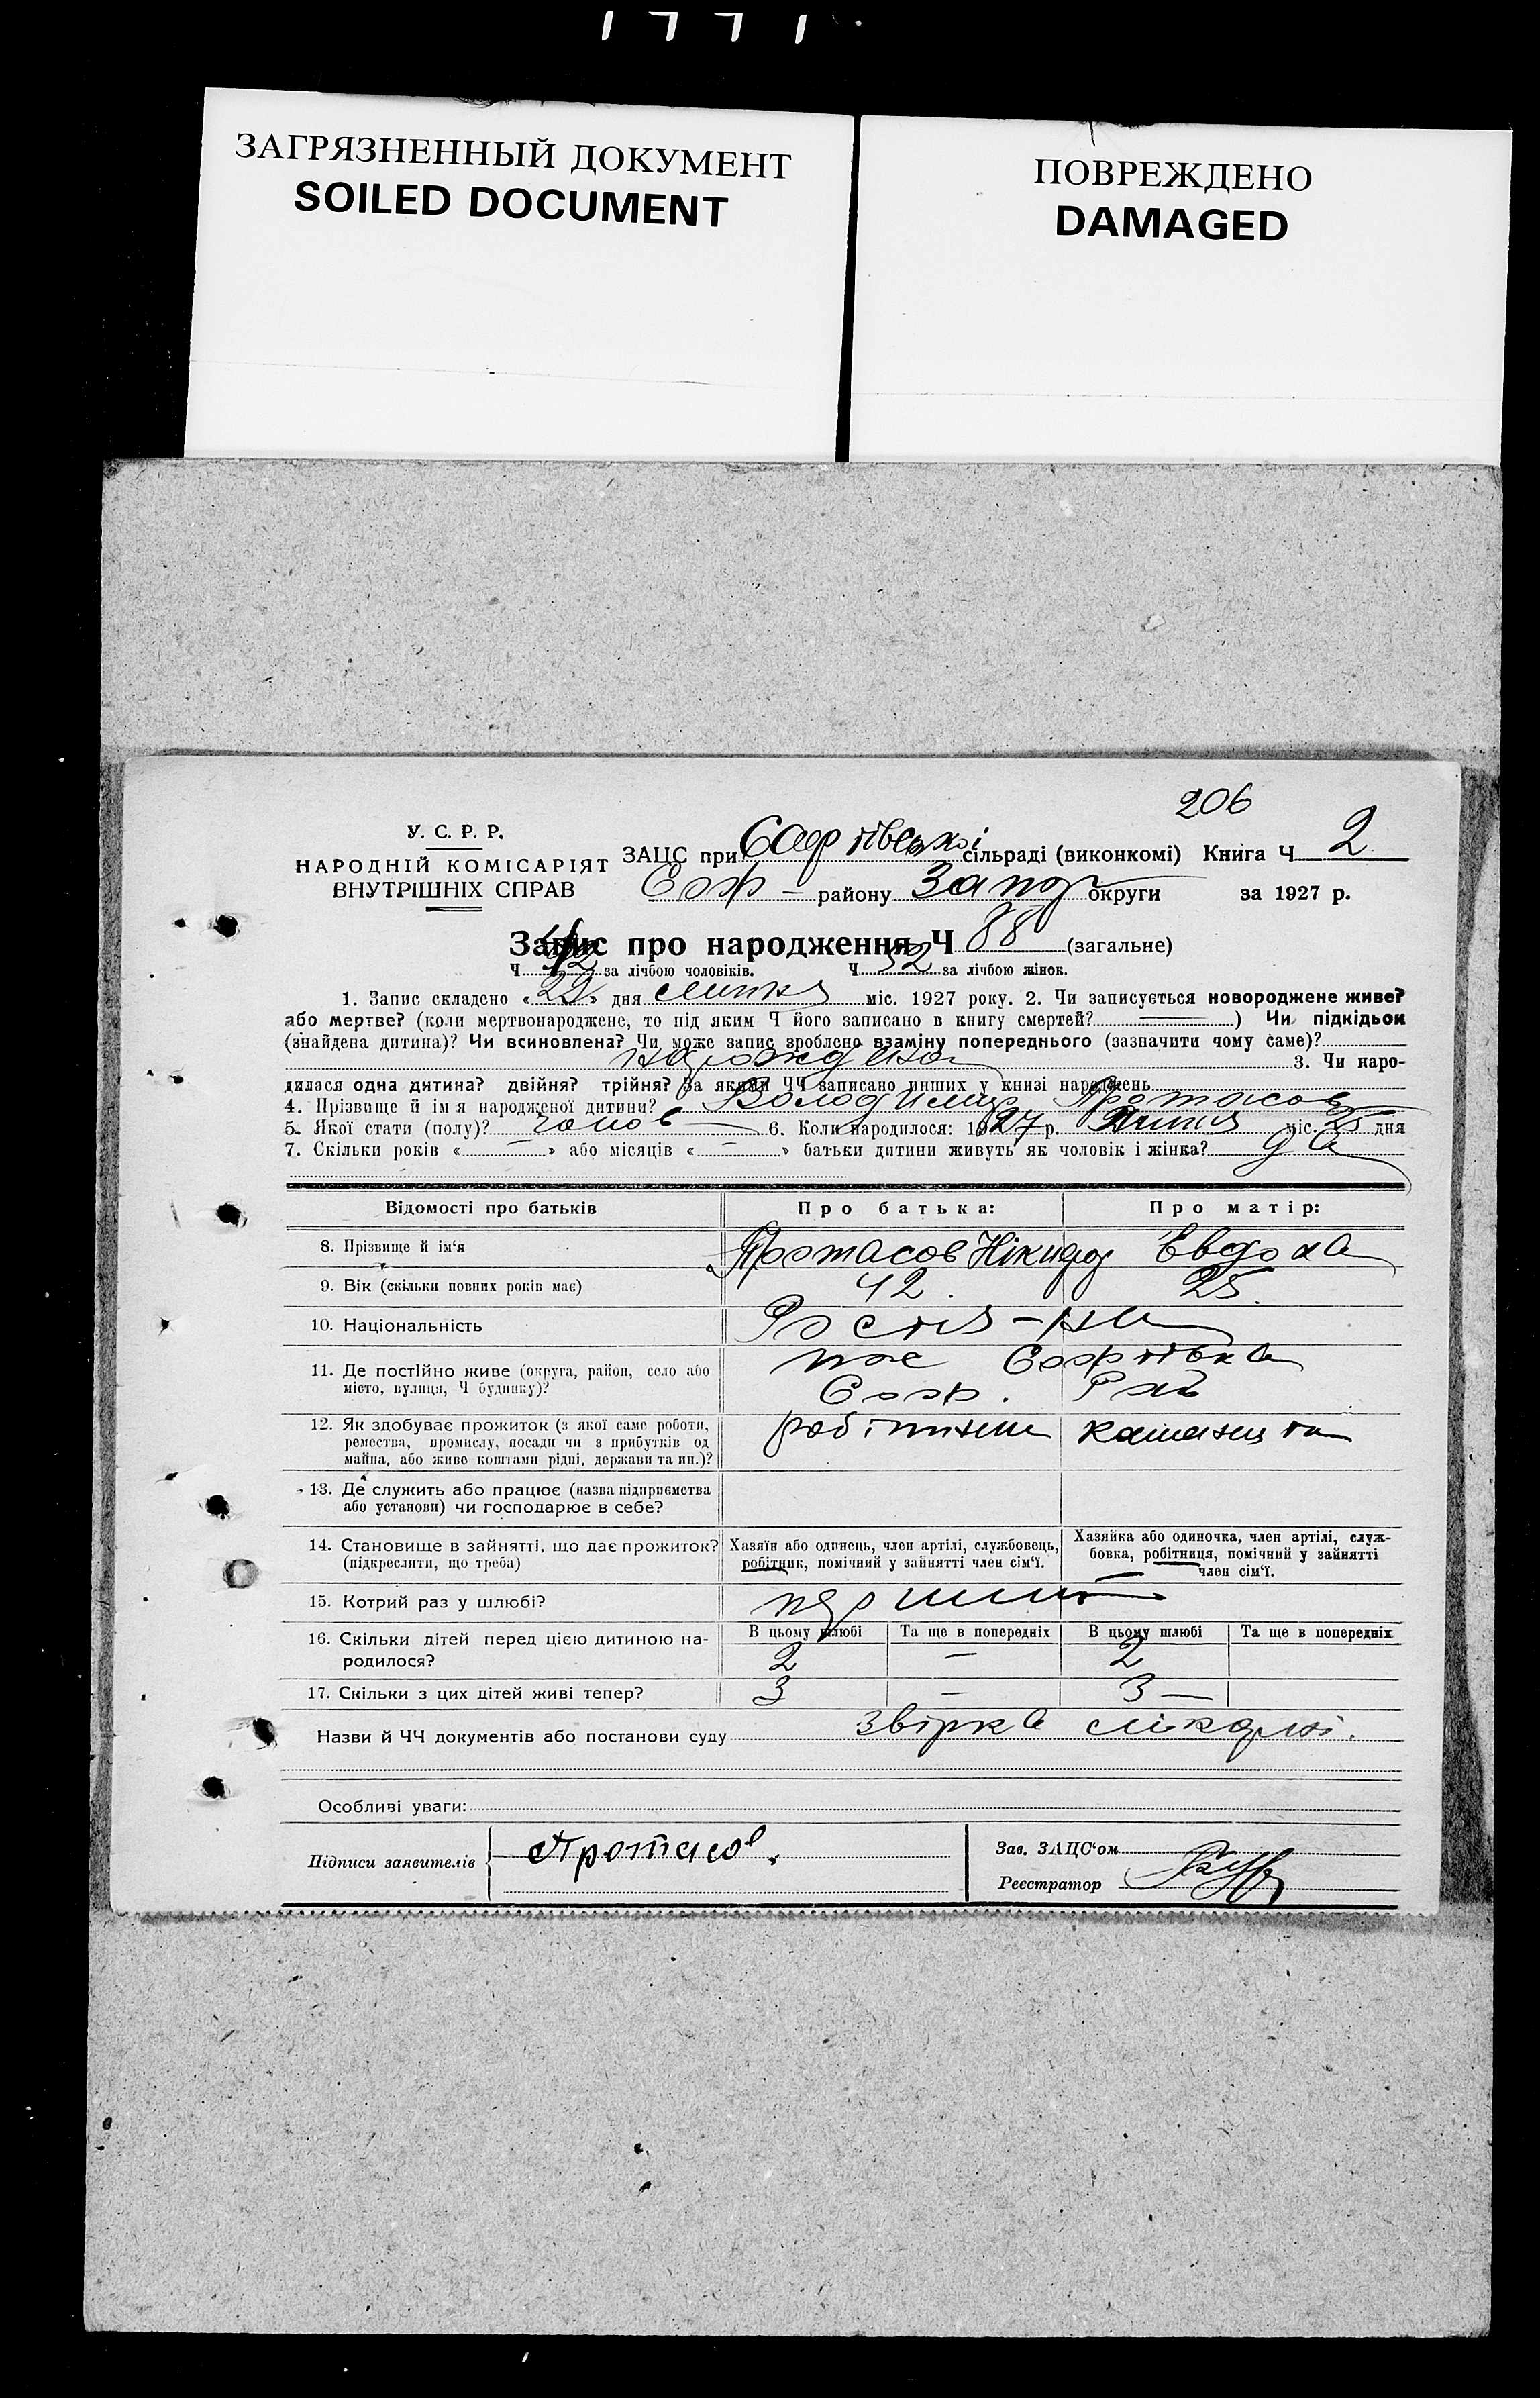 1771
ЗАГРЯЗНЕННЫЙ ДОКУМЕНТ
SOILED DOCUMENT
ПОВРЕЖДЕНО
DAMAGED
206
У. С. Р. Р.
НАРОДНІЙ КОМІСАРІЯТ
ВНУТРІШНІХ СПРАВ
ЗАЦС при Софіївської сільраді (виконкомі) Книга Ч 2
Соф – району Запор округи за 1927 р.
Запис про народження Ч 88 (загальне)
Ч за лічбою чоловіків. Ч 32 за лічбою жінок.
1. Запис складено « » дня Липня міс. 1927 року. 2. Чи записується новороджене живе?
або мертве? (коли мертвонароджене, то під яким Ч його записано в книгу смертей? —) Чи підкідьок
(знайдена дитина)? Чи всиновлена? Чи може запис зроблено взаміну попереднього (зазначити чому саме)?
3. Чи наро-
дилася одна дитина? двійня? трійня? За якими ЧЧ записано инших у книзі народжень
4. Прізвище й імя народженої дитини? Володимир Протасов
5. Якої стати (полу)? чолов 6. Коли народилося: 1927 р. Липня міс. 25 дня
7. Скільки років « — » або місяців « — » батьки дитини живуть як чоловік і жінка? да
Відомості про батьків
Про батька:
Про матір:
8. Прізвище й ім‘я Протасов Нікифор Евдоха
9. Вік (скільки повних років має) 42. 25.
10. Національність Росія-на
11. Де постійно живе (округа, район, село або Софіївка
місто, вулиця, Ч будинку)? Соф. Рай
12. Як здобуває прожиток (з якої саме роботи,
ремества, промислу, посади чи з прибутків од
майна, або живе коштами рідні, держави та ин.)?
13. Де служить або працює (назва підприємства
або установи) чи господарює в себе?
14. Становище в зайнятті, що дає прожиток?
(підкреслити, що треба)
Хазяїн або одинець, член артілі, службовець,
робітник, помічний у зайнятті член сім‘ї.
Хазяйка або одиночка, член артілі, служ-
бовка, робітниця, помічний у зайнятті
член сім‘ї.
15. Котрий раз у шлюбі? перший
16. Скільки дітей перед цією дитиною на-
родилося?
В цьому шлюбі Та ще в попередніх В цьому шлюбі Та ще в попередніх
2 — 2
17. Скільки з цих дітей живі тепер? 3 — 3 —
Назви й ЧЧ документів або постанови суду звірка
Особливі уваги:
Підписи заявителів Протасов.
Зав. ЗАЦС‘ом
Реєстратор